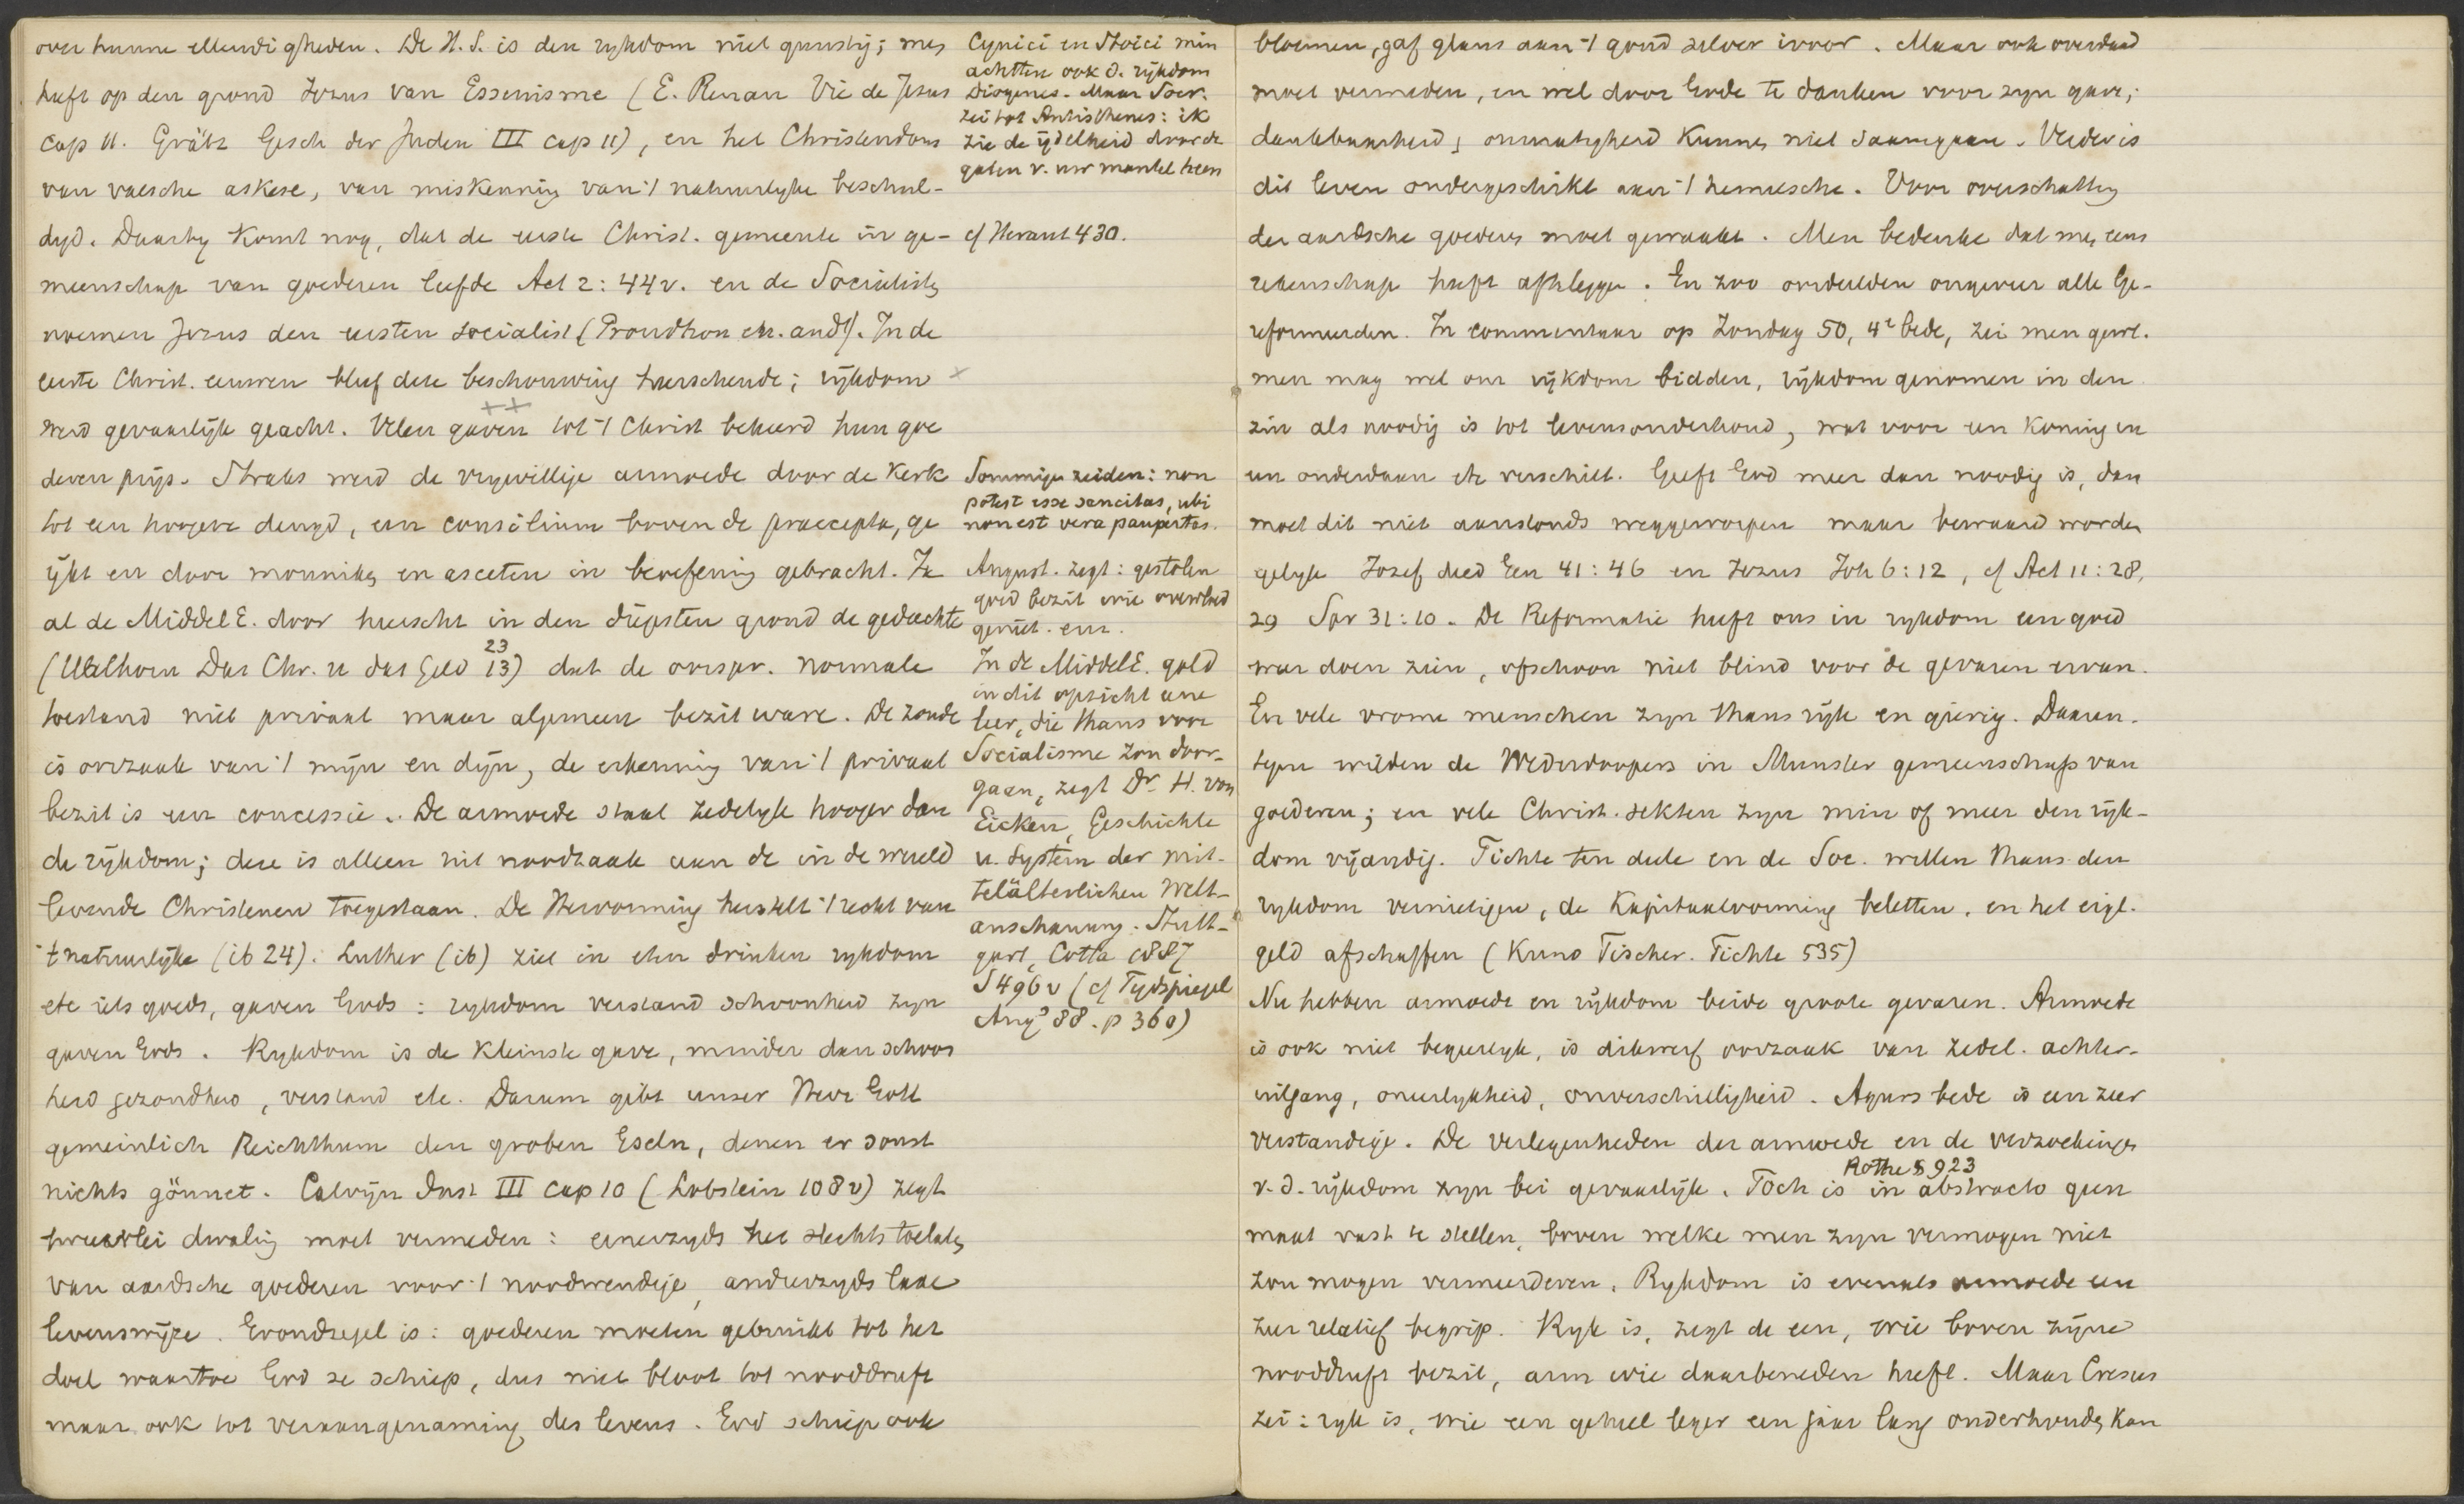 over hunne ellendigheden. De H.S. is den rykdom niet gunstig; men
heeft op den grond Jezus van Essenisme (E. Renan Vie de Jesus
cap 11. Grätz Gesch der Juden III cap 11), en het Christendom
van valsche askese, van miskenning van 't natuurlyke beschul-
digd. Daarby komt nog, dat de eerste Christ. gemeente in ge-
meenschap van goederen leefde Act 2:44v. en de Socialisten
noemen Jezus den eersten socialist (Proudhon en. and). In de
eerste Christ. eeuwen bleef deze beschouwing heerschende; rijkdom
werd gevaarlijk geacht. Velen gaven tot 't Christ bekeerd hun goe
deren prijs. Straks werd de vrywillige armoede door de Kerk
tot een hoogere deugd, een consilium boven de praecepta, ge
ijkt en door monniken en asceten in beoefening gebracht. Ja
al de Middel E. door heerscht in den diepsten grond de gedachte
23
(Uhlhorn Das Chr. u das Geld 13) dat de oorspr. normale
toestand niet privaat maar algemeen bezit ware. De zonde
is oorzaak van 't mijn en dijn, de erkenning van 't privaat
bezit is een concessie. De armoede staat zedelyk hooger dan
de rijkdom; deze is alleen uit noodzaak aan de in de wereld
levende Christenen toegestaan. De Hervorming herstelt 't recht van
't natuurlijke (ib 24). Luther (ib) ziet in eten drinken rykdom
etc iets goeds, gaven Gods: rykdom verstand schoonheid zyn
gaven Gods. Rykdom is de kleinste gave, minder dan schoon
heid gezondheid, verstand etc. Darum gibt unser Herr Gott
gemeinlich Reichthum den groben Eseln, denen er sonst
nichts gönnet. Calvijn Inst III cap 10 (Lobstein 108v) zegt
tweeërlei dwaling moet vermeden: eenerzyds het slechts toelaten
van aardsche goederen voor 't noodwendige, anderzyds laxe
levenswijze. Grondregel is: goederen moeten gebruikt tot het
doel waartoe God ze schiep, dus niet bloot tot nooddruft
maar ook tot veraangenaming des levens. God schiep ook
Cynici en Stoici min
achtten ook d. rijkdom
Diogenes. Maar Socr.
zei tot Antisthenes: ik
zie de ijdelheid door de
gaten v. uw mantel heen
cf Heraut 430.
Sommige zeiden: non
potest esse sanctitas, ubi
non est vera paupertas.
August. zegt: gestolen
goed bezit wie overvloed
geniet. enz.
In de MiddelE. gold
in dit opzicht eene
leer, die thans voor
Socialisme zou door-
gaan, zegt Dr. H. von
Eicken, Geschichte
u. System der mit-
telälterlichen Welt-
anschauung. Stutt-
gart, Cotta 1887
S 496v (cf Tydspiegel
Augs 88. p 360)
bloemen, gaf glans aan 't goud zilver ivoor. Maar ook overdaad
moet vermeden, en wel door Gode te danken voor zyn gave;
dankbaarheid & onmatigheid kunnen niet saamgaan. Verder is
dit leven ondergeschikt aan 't hemelsche. Voor overschatting
der aardsche goederen moet gewaakt. Men bedenke dat men eens
rekenschap heeft afteleggen. En zoo oordeelden ongeveer alle Ge-
reformeerden. In commentaar op Zondag 50, 4e bede, zei men gewl.
men mag wel om rijkdom bidden, rijkdom genomen in den
zin als noodig is tot levensonderhoud, wat voor een Koning en
een onderdaan etc verschilt. Geeft God meer dan noodig is, dan
moet dit niet aanstonds weggeworpen maar bewaard worden
gelyk Jozef deed Gen 41:46 en Jezus Joh 6:12, cf Act 11:28,
29 Spr 31:10. De Reformatie heeft ons in rykdom een goed
weer doen zien, ofschoon niet blind voor de gevaren ervan.
En vele vrome menschen zyn thans rijk en gierig. Daaren-
tegen wilden de Wederdoopers in Munster gemeenschap van
goederen; en vele Christ. sekten zyn min of meer den rijk-
dom vijandig. Fichte ten deele en de Soc. willen thans den
rykdom vernietigen, de Kapitaalvorming beletten, en het eigl.
geld afschaffen (Kuno Fischer. Fichte 535)
Nu hebben armoede en rijkdom beide groote gevaren. Armoede
is ook niet begeerlyk, is dikwerf oorzaak van zedel. achter-
uitgang, oneerlykheid, onverschilligheid. Agurs bede is een zeer
verstandige. De verlegenheden der armoede en de verzoekingen
Rothe § 923
v. d. rijkdom zyn bei gevaarlijk. Toch is in abstracto geen
maat vast te stellen, boven welke men zyn vermogen niet
zou mogen vermeerderen. Rykdom is evenals armoede een
zeer relatief begrip. Ryk is, zegt de een, wie boven zijne
nooddruft bezit, arm wie daarbeneden heeft. Maar Cresus
zei: ryk is, wie een geheel leger een jaar lang onderhouden kan